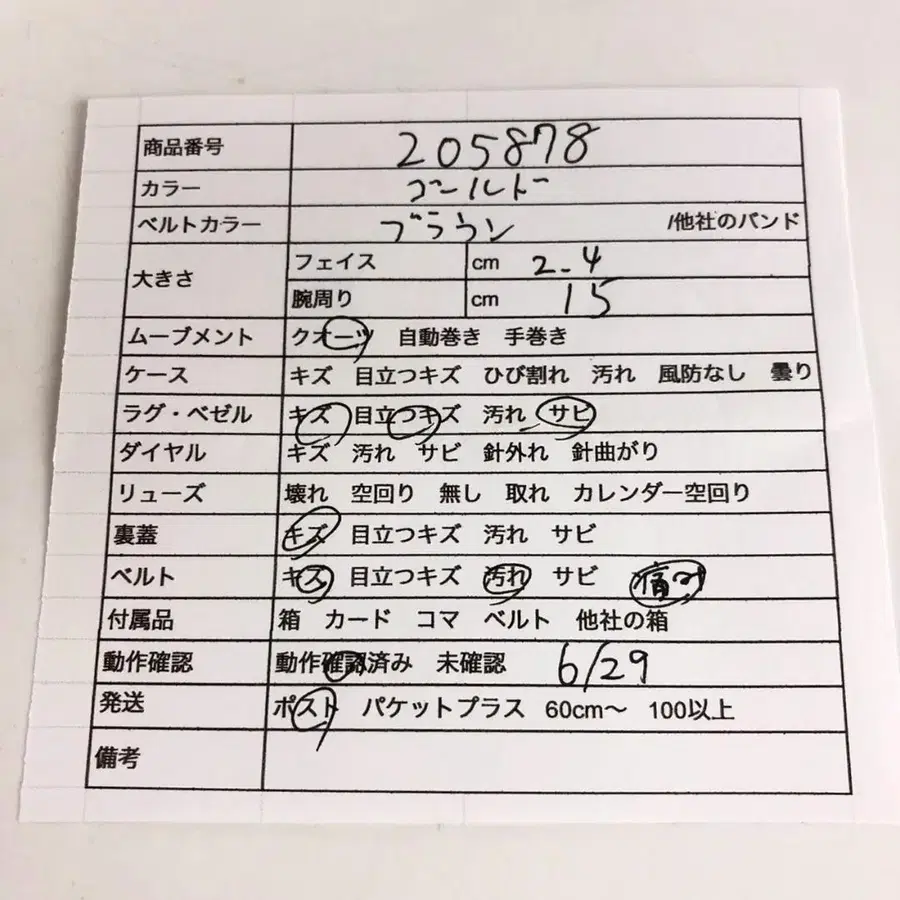 商品番号 205878
カラー ゴールド
ベルトカラー ブラウン /他社のバンド
大きさ フェイス cm 2.4
腕周り cm 15
ムーブメント クオーツ 自動巻き 手巻き
ケース キズ 目立つキズ ひび割れ 汚れ 風防なし 曇り
ラグ・ベゼル キズ 目立つキズ 汚れ サビ
ダイヤル キズ 汚れ サビ 針外れ 針曲がり
リューズ 壊れ 空回り 無し 取れ カレンダー空回り
裏蓋 キズ 目立つキズ 汚れ サビ
ベルト キズ 目立つキズ 汚れ サビ 痛み
付属品 箱 カード コマ ベルト 他社の箱
動作確認 動作確認済み 未確認 6/29
発送 ポスト パケットプラス 60cm〜 100以上
備考